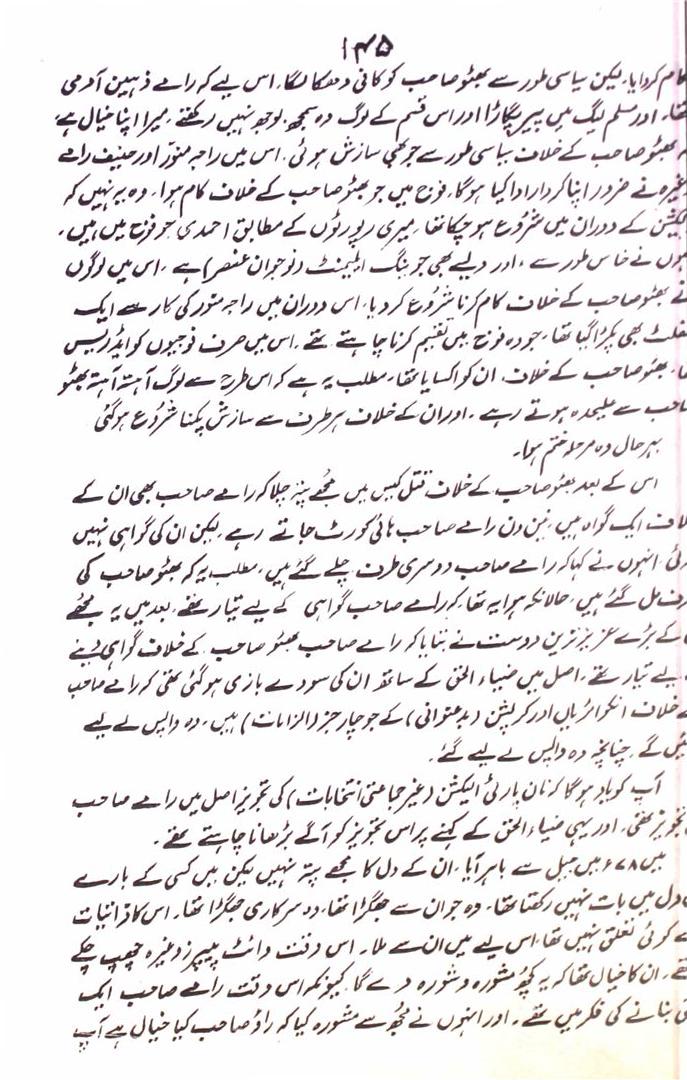 ۱۴۵
کام کر دیا۔ لیکن سیاسی طور سے بھٹو صاحب کو کافی دھکا لگا۔ اس لیے کہ رامے ذہین آدمی
تھا۔ اور مسلم لیگ میں پیر پگاڑا اور اس قسم کے لوگ وہ سمجھ بوجھ نہیں رکھتے۔ میرا اپنا خیال ہے،
بھٹو صاحب کے خلاف سیاسی طور سے جو بھی سازش ہوئی۔ اس میں راجہ منور اور حنیف رامے
وغیرہ نے ضرور اپنا کردار ادا کیا ہوگا۔ فوج میں جو بھٹو صاحب کے خلاف کام ہوا۔ وہ یہ نہیں کہ
الیکشن کے دوران میں شروع ہو چکا تھا۔ میری رپورٹوں کے مطابق احمدی جو فوج میں ہیں۔
انہوں نے خاص طور سے، اور ویسے بھی جو ینگ ایلیمنٹ (نوجوان عنصر) ہے۔ اس میں لوگوں
نے بھٹو صاحب کے خلاف کام کرنا شروع کر دیا۔ اس دوران میں راجہ منور کی کار سے ایک
پمفلٹ بھی پکڑا گیا تھا۔ جو وہ فوج میں تقسیم کرنا چاہتے تھے۔ اس میں صرف فوجیوں کو ایڈریس
تھا۔ بھٹو صاحب کے خلاف، ان کو اکسایا تھا۔ مطلب یہ ہے کہ اس طرح سے لوگ آہستہ آہستہ بھٹو
صاحب سے علیحدہ ہوتے رہے۔ اور ان کے خلاف ہر طرف سے سازش پکنا شروع ہو گئی
بہر حال وہ مرحلہ ختم ہوا۔
اس کے بعد بھٹو صاحب کے خلاف قتل کیس میں مجھے پتہ چلا کہ رامے صاحب بھی ان کے
خلاف ایک گواہ ہیں۔ تین دن رامے صاحب ہائی کورٹ جاتے رہے۔ لیکن ان کی گواہی نہیں
ہوئی۔ انہوں نے کہا کہ رامے صاحب دوسری طرف چلے گئے ہیں۔ مطلب یہ کہ بھٹو صاحب کی
طرف مل گئے ہیں۔ حالانکہ ہوا یہ تھا۔ کہ رامے صاحب گواہی کے لیے تیار تھے۔ بعد میں یہ مجھے
ان کے بڑے عزیز ترین دوست نے بتایا کہ رامے صاحب بھٹو صاحب کے خلاف گواہی دینے
کے لیے تیار تھے۔ اصل میں ضیاء الحق کے ساتھ ان کی سودے بازی ہو گئی تھی کہ رامے صاحب
کے خلاف انکوائریاں اور کرپشن (بدعنوانی) کے جو چارجز (الزامات) ہیں۔ وہ واپس لے لیے
جائیں گے۔ چنانچہ وہ واپس لے لیے گئے۔
آپ کو یاد ہوگا کہ نان پارٹی الیکشن (غیر جماعتی انتخابات) کی تجویز اصل میں رامے صاحب
کی تجویز تھی۔ اور یہی ضیاء الحق کے کہنے پر اس تجویز کو آگے بڑھانا چاہتے تھے۔
میں ۷۸ء میں جیل سے باہر آیا۔ ان کے دل کا مجھے پتہ نہیں لیکن میں کسی کے بارے
دل میں بات نہیں رکھتا تھا۔ وہ جو ان سے جھگڑا تھا۔ وہ سرکاری جھگڑا تھا۔ اس کا ذاتیات
سے کوئی تعلق نہیں تھا۔ اس لیے میں ان سے ملا۔ اس وقت وائٹ پیپرز وغیرہ چھپ چکے
تھے۔ ان کا خیال تھا کہ یہ کچھ مشورہ وشورہ دے گا۔ کیونکہ اس وقت رامے صاحب ایک
بنانے کی فکر میں تھے۔ اور انہوں نے مجھ سے مشورہ کیا کہ راؤ صاحب کیا خیال ہے آپ